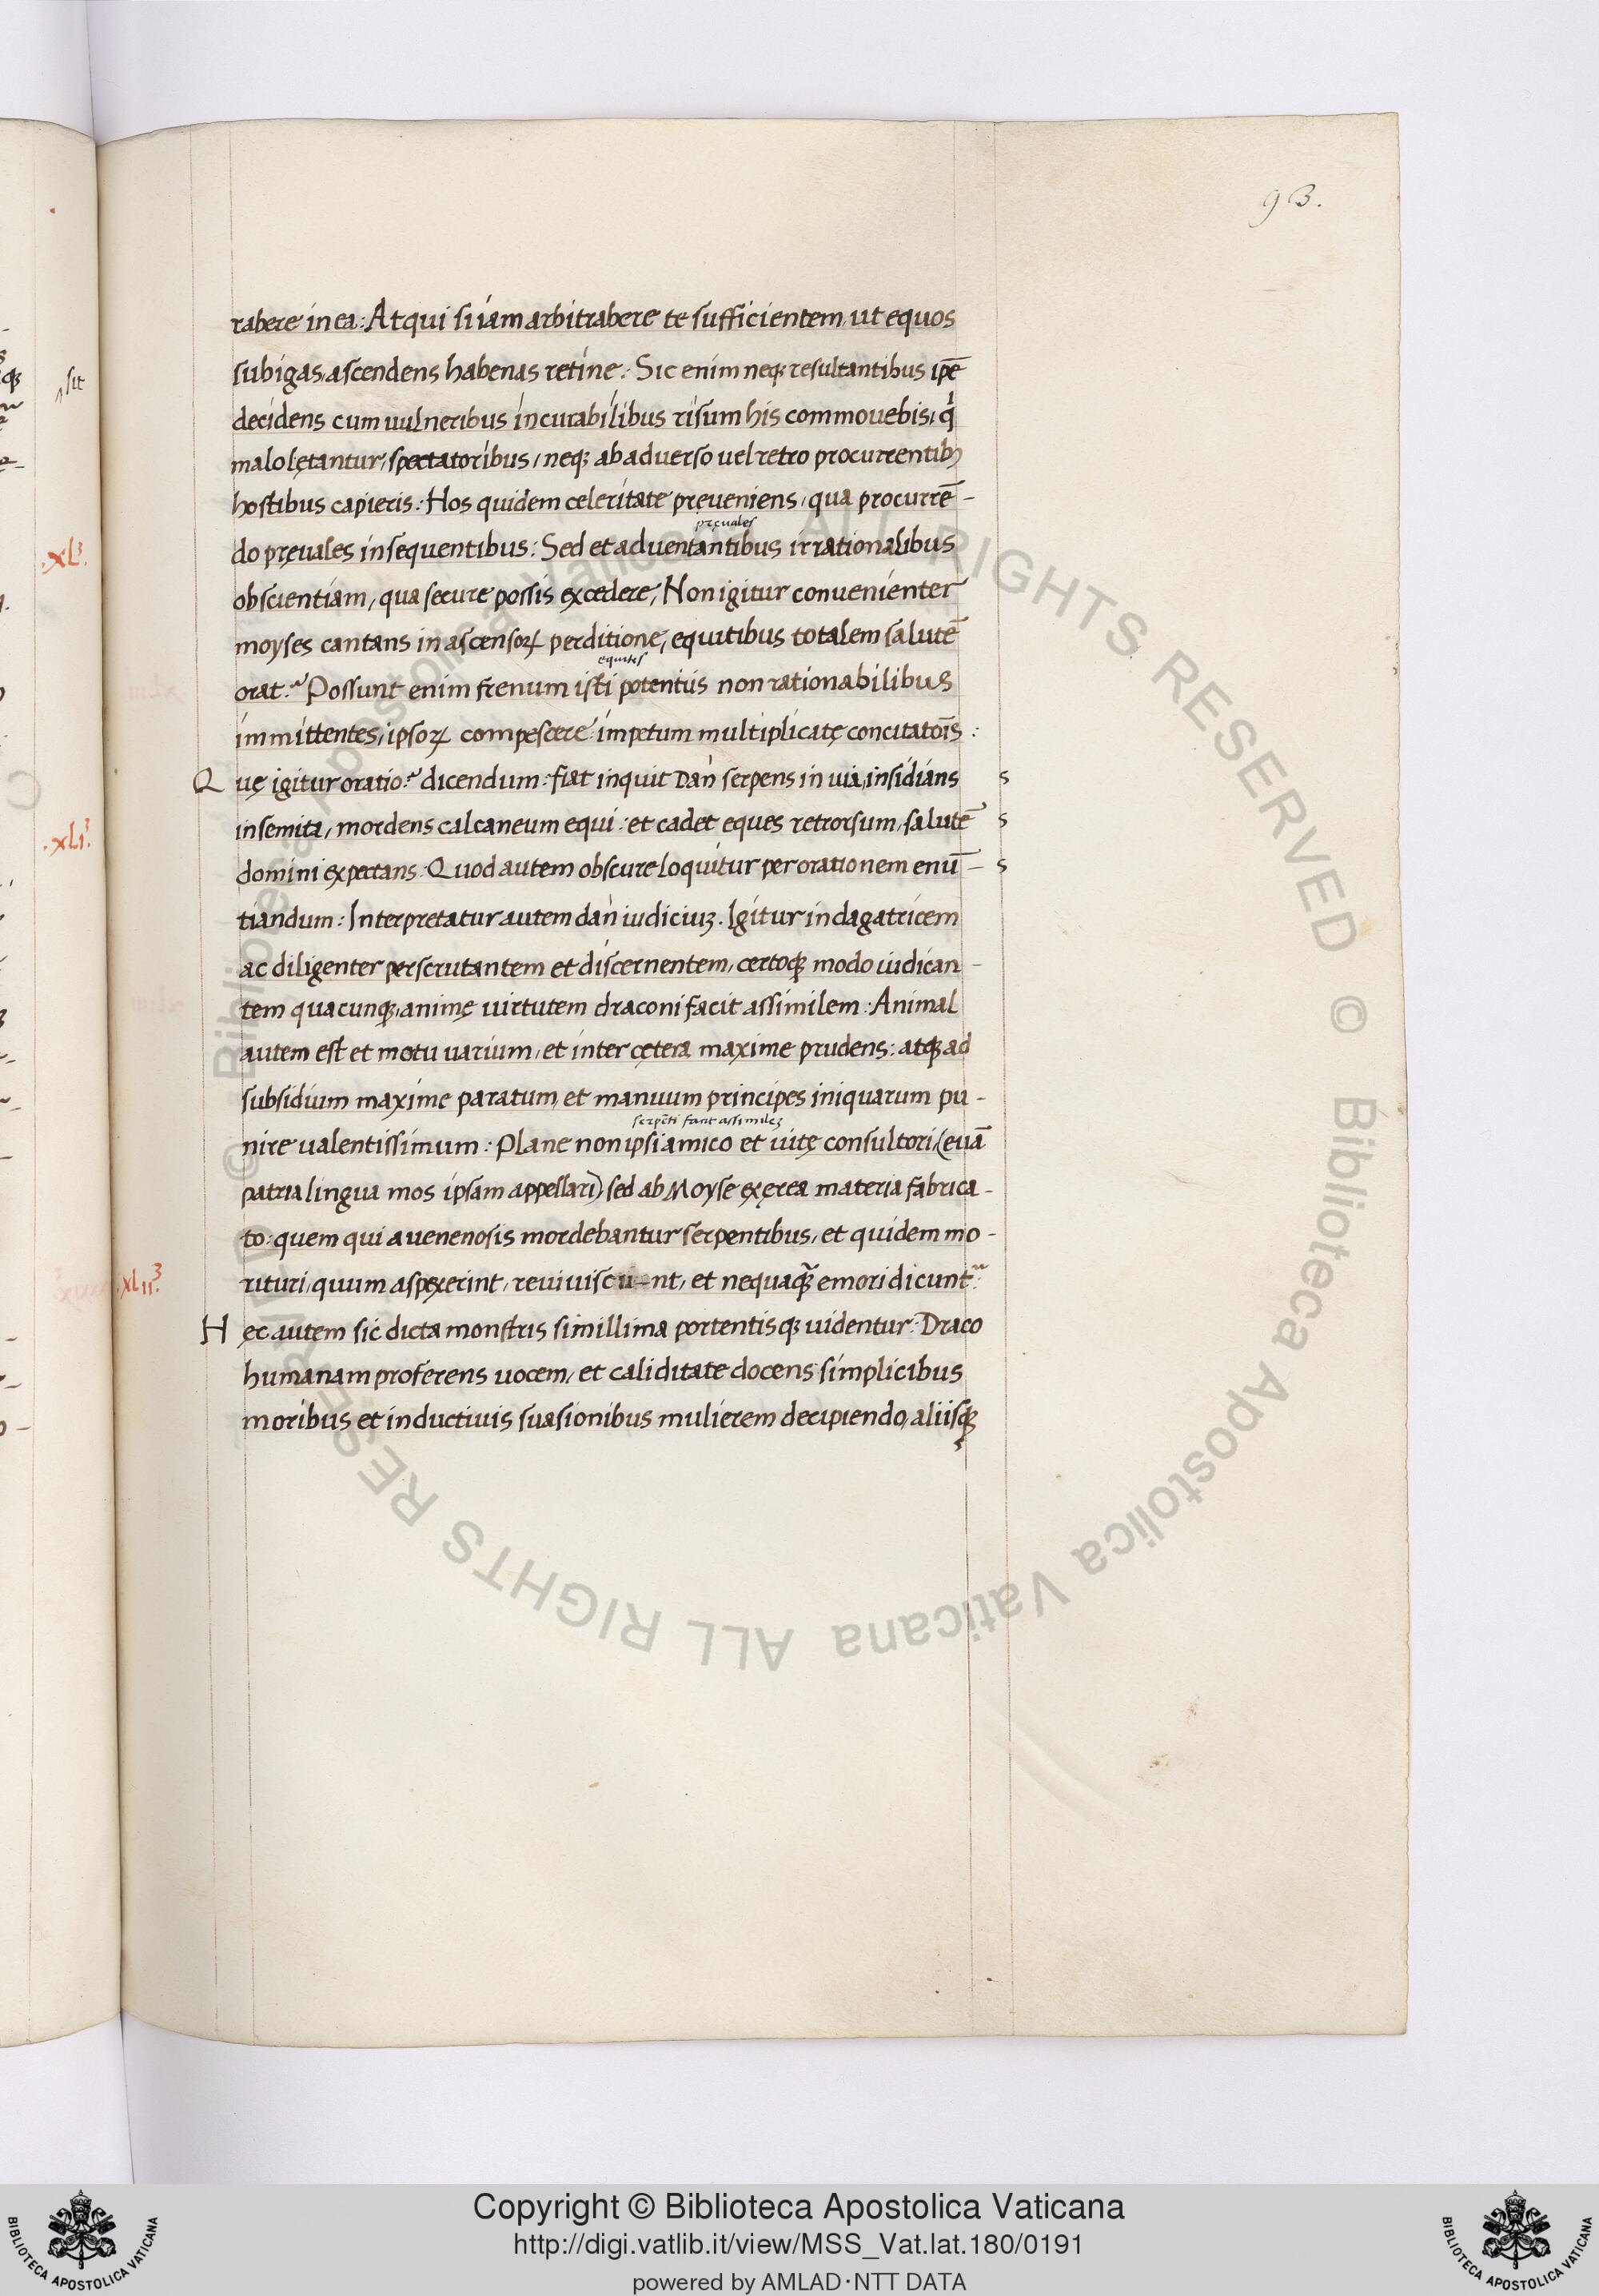 93.
rabere in ea: Atqui si iám arbitrabere te sufficientem, ut equos
subigas, ascendens habenas retine: Sic enim neq; resultantibus ip̄e
decidens cum uulneribus incurabilibus risum his commouebis, q̇
malo lętantur, spectatoribus, neq; ab aduerso uel retro procurrentib;
hostibus capieris: Hos quidem celeritate pręueniens, qua procurrē-
pręuales
do pręuales insequentibus: Sed et aduentantibus irrationalibus
ob scientiam, qua secure possis excedere, Non igitur conuenienter
moyses cantans in ascensoꝝ perditione, equitibus totalem salutē
equites
orat:~ Possunt enim frenum isti potentiis non rationabilibus
immittentes, ipsoꝝ compescere impetum multiplicatę concitatoīs:
Quę igitur oratio:~ dicendum: fiat inquit Dan serpens in uia, insidians s
in semita, mordens calcaneum equi: et cadet eques retrorsum, salutē s
domini expectans: Quod autem obscure loquitur per orationem enū- s
tiandum: Interpretatur autem dan iudiciuꝫ. Igitur indagatricem
ac diligenter perscrutantem et discernentem, certoq; modo iudican-
tem quacunq;, animę uirtutem draconi facit assimilem: Animal
autem est et motu uarium, et inter cętera maxime prudens: atq; ad
subsidium maxime paratum, et manuum principes iniquarum pu-
serpēti fant assimileꝫ
nire ualentissimum: Plane non ipsi amico et uitę consultori, (euā
patria lingua mos ipsam appellari) sed ab Moyse ex ęrea materia fabrica-
to: quem qui a uenenosis mordebantur serpentibus, et quidem mo-
.XLII.ꝫ
rituri, quum aspexerint, reuiuiscu-nt, et nequaq̃ emori dicunt:~
Hęc autem sic dicta monstris simillima portentisq; uidentur: Draco
humanam proferens uocem, et caliditate docens simplicibus
moribus et inductiuis suasionibus mulierem decipiendo, aliisq;
sit
.XL.ꝫ
.XLI.ꝫ
© Biblioteca Apostolica Vaticana ALL RIGHTS RESERVED © Biblioteca Apostolica Vaticana ALL RIGHTS RESERVED
Copyright © Biblioteca Apostolica Vaticana
http://digi.vatlib.it/view/MSS_Vat.lat.180/0191
powered by AMLAD·NTT DATA
BIBLIOTECA APOSTOLICA VATICANA
BIBLIOTECA APOSTOLICA VATICANA